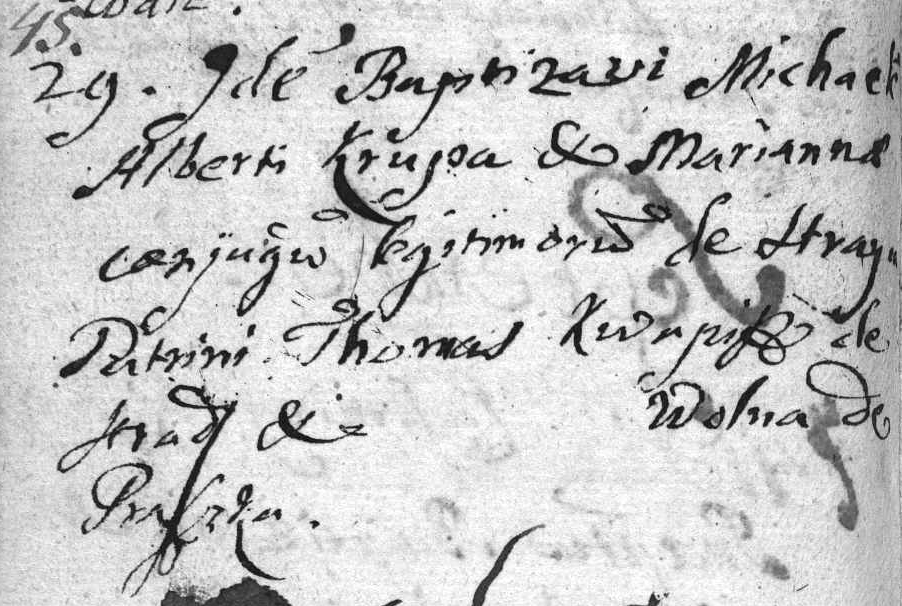 45.
29. Idē Baptizavi Michaelē
Alberti Krupa & Marianna
conjugū legitimorū de
Patrini Thomas Kwapiss de
Strad & Wolna de
Praszka.